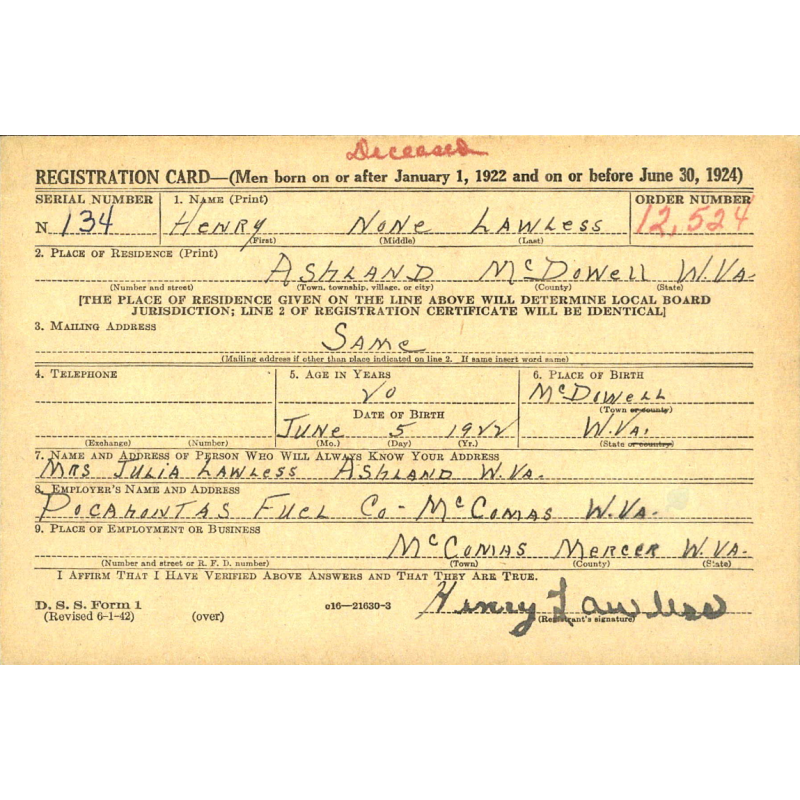 Deceased
REGISTRATION CARD—(Men born on or after January 1, 1922 and on or before June 30, 1924)
SERIAL NUMBER 1. NAME (Print) ORDER NUMBER
N 134 HENRY NONE LAWLESS 12,524
(First) (Middle) (Last)
2. PLACE OF RESIDENCE (Print)
ASHLAND McDOWELL W.VA.
(Number and street) (Town, township, village, or city) (County) (State)
[THE PLACE OF RESIDENCE GIVEN ON THE LINE ABOVE WILL DETERMINE LOCAL BOARD
JURISDICTION; LINE 2 OF REGISTRATION CERTIFICATE WILL BE IDENTICAL]
3. MAILING ADDRESS
SAME
(Mailing address if other than place indicated on line 2. If same insert word same)
4. TELEPHONE 5. AGE IN YEARS 6. PLACE OF BIRTH
20 McDOWELL
DATE OF BIRTH (Town or county)
JUNE 5 1922 W.VA.
(Exchange) (Number) (Mo.) (Day) (Yr.) (State or country)
7. NAME AND ADDRESS OF PERSON WHO WILL ALWAYS KNOW YOUR ADDRESS
MRS JULIA LAWLESS ASHLAND W.VA.
8. EMPLOYER'S NAME AND ADDRESS
POCAHONTAS FUEL CO- McCOMAS W.VA-
9. PLACE OF EMPLOYMENT OR BUSINESS
McCOMAS MERCER W.VA-
(Number and street or R. F. D. number) (Town) (County) (State)
I AFFIRM THAT I HAVE VERIFIED ABOVE ANSWERS AND THAT THEY ARE TRUE.
D. S. S. Form 1 c16—21630-3 Henry Lawless
(Revised 6-1-42) (over) (Registrant's signature)